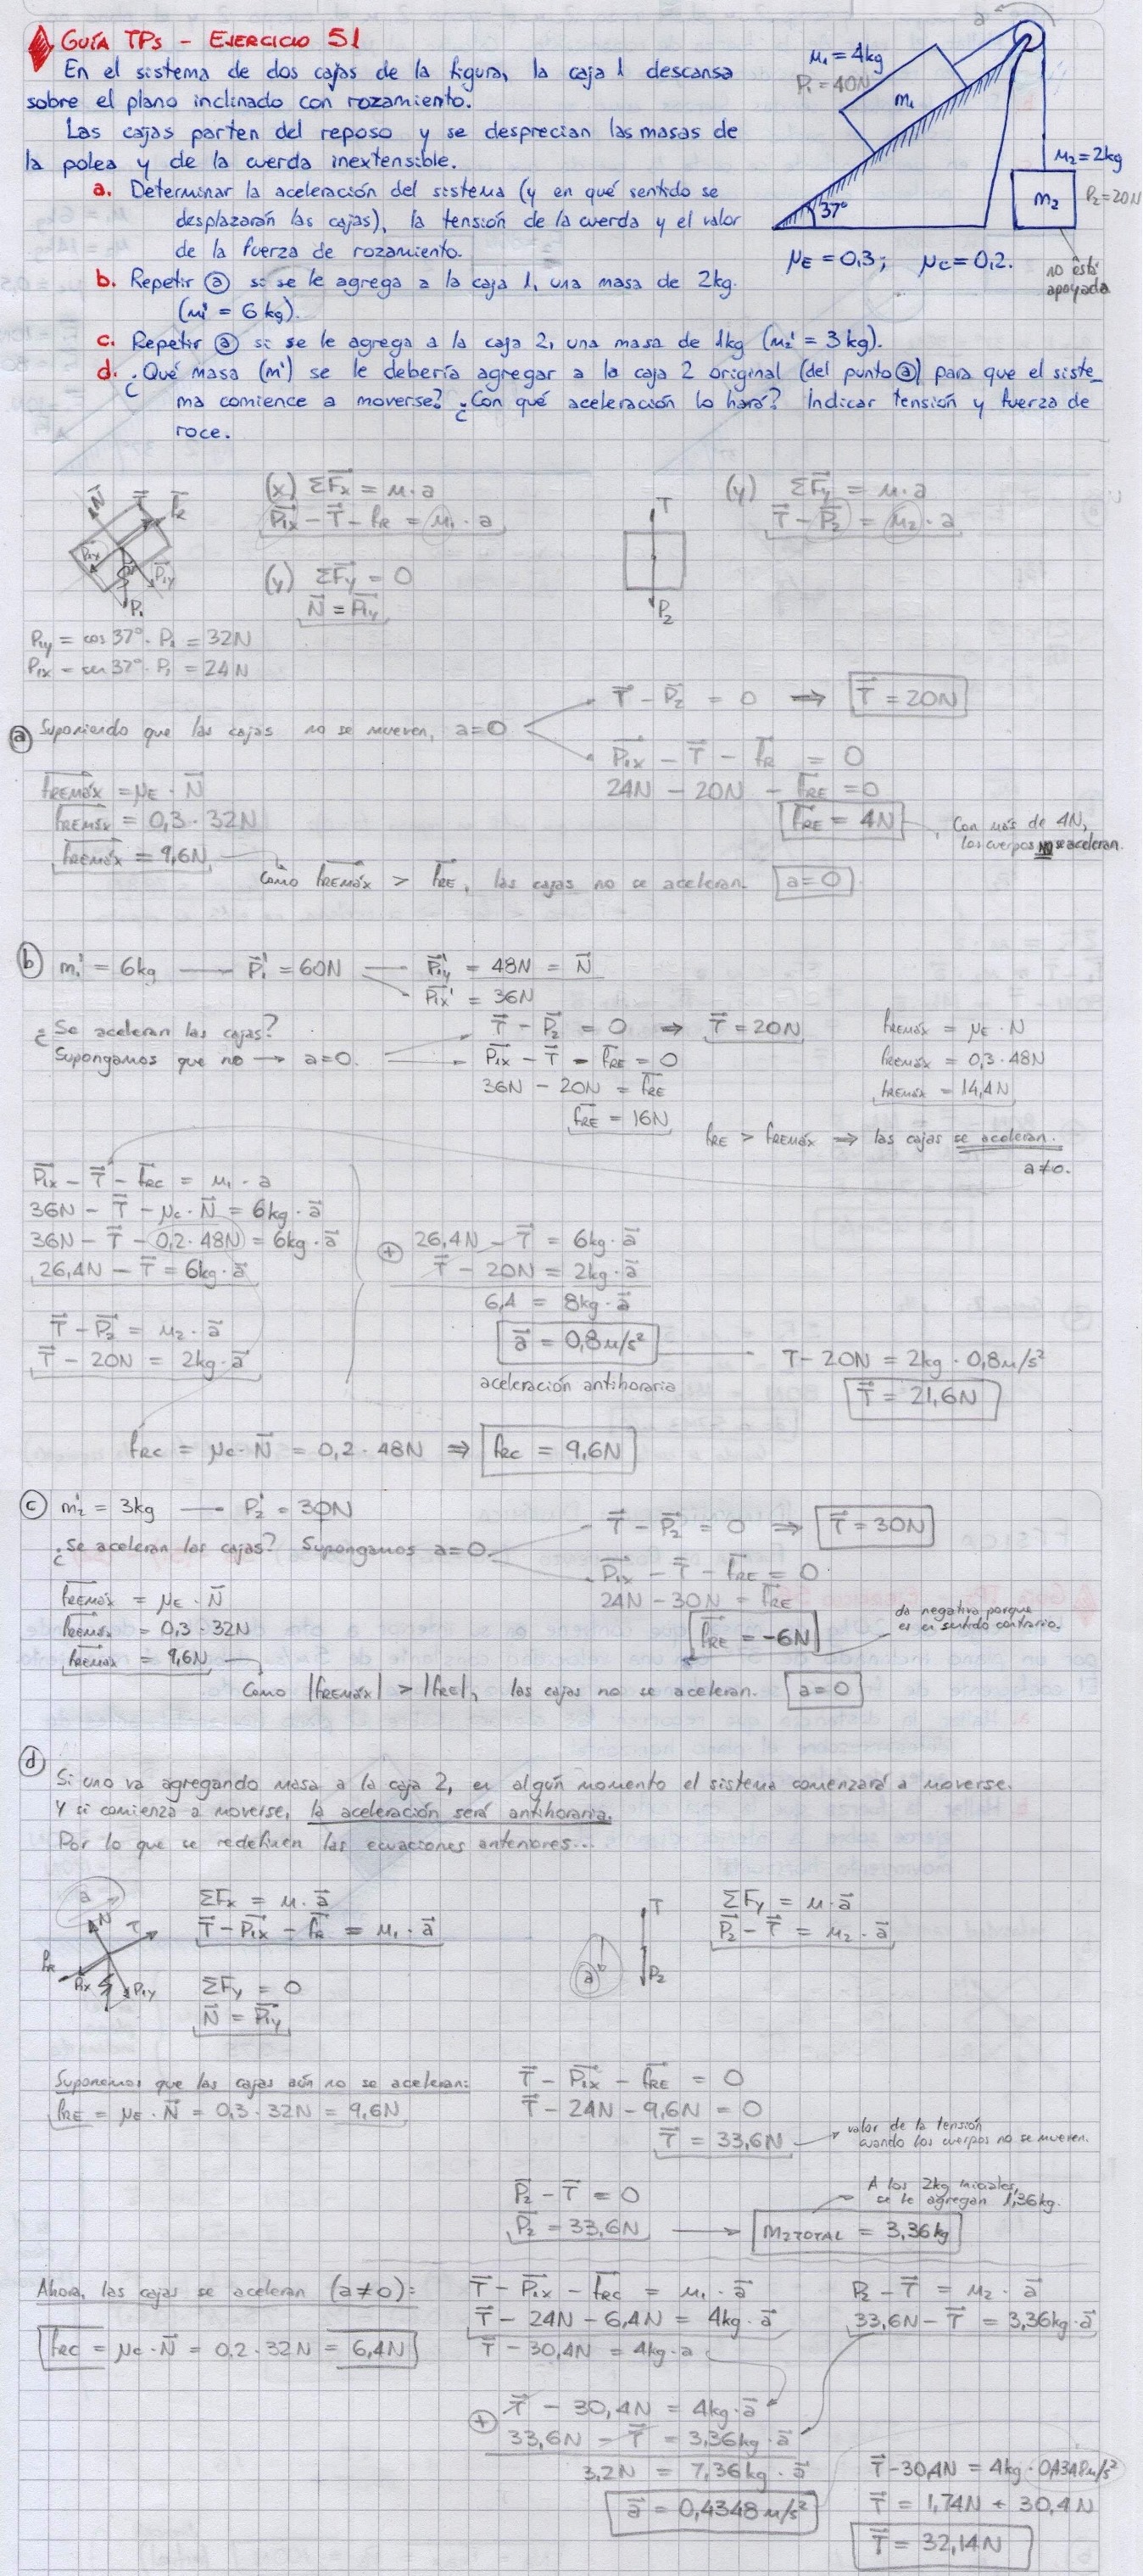 GUÍA TPs - EJERCICIO 51
En el sistema de dos cajas de la figura, la caja 1 descansa
sobre el plano inclinado con rozamiento.
Las cajas parten del reposo y se desprecian las masas de
la polea y de la cuerda inextensible.
a. Determinar la aceleración del sistema (y en qué sentido se
desplazarán las cajas), la tensión de la cuerda y el valor
de la fuerza de rozamiento.
b. Repetir ⓐ si se le agrega a la caja 1, una masa de 2kg.
(m₁' = 6kg).
c. Repetir ⓐ si se le agrega a la caja 2, una masa de 1kg (m₂' = 3kg).
d. ¿Qué masa (m') se le debería agregar a la caja 2 original (del punto ⓐ) para que el siste_
ma comience a moverse? ¿Con qué aceleración lo hará? Indicar tensión y fuerza de
roce.
a
m₁ = 4kg
P₁ = 40N
m₁
m₂ = 2kg
P₂ = 20N
m₂
37°
μE = 0,3; μc = 0,2.
no está
apoyada
N T fR
P1x P1y
P₁
(x) ΣFx = m·a
P1x - T - fR = m₁·a
(y) ΣFy = 0
N = P1y
T
P₂
(y) ΣFy = m·a
T - P₂ = m₂·a
P1y = cos 37°·P₁ = 32N
P1x = sen 37°·P₁ = 24N
ⓐ Suponiendo que las cajas no se mueven, a=0
T - P₂ = 0 ⇒ T = 20N
P1x - T - fR = 0
24N - 20N - fRE = 0
fRE = 4N
Con más de 4N,
los cuerpos no se aceleran.
fREmáx = μE·N
fREmáx = 0,3·32N
fREmáx = 9,6N
Como fREmáx > fRE, las cajas no se aceleran. a=0
ⓑ m₁' = 6kg — P₁' = 60N — P1y' = 48N = N
P1x' = 36N
¿Se aceleran las cajas?
Supongamos que no → a=0.
T - P₂ = 0 ⇒ T = 20N
P1x - T - fRE = 0
36N - 20N = fRE
fRE = 16N
fREmáx = μE·N
fREmáx = 0,3·48N
fREmáx = 14,4N
fRE > fREmáx ⇒ las cajas se aceleran.
a≠0.
P1x - T - fRC = m₁·a
36N - T - μc·N = 6kg·a
36N - T - 0,2·48N = 6kg·a
26,4N - T = 6kg·a
T - P₂ = m₂·a
T - 20N = 2kg·a
+ 26,4N - T = 6kg·a
T - 20N = 2kg·a
6,4 = 8kg·a
a = 0,8m/s²
aceleración antihoraria
T - 20N = 2kg·0,8m/s²
T = 21,6N
fRC = μc·N = 0,2·48N ⇒ fRC = 9,6N
ⓒ m₂' = 3kg — P₂' = 30N
¿Se aceleran las cajas? Supongamos a=0.
T - P₂' = 0 ⇒ T = 30N
P1x - T - fRE = 0
24N - 30N = fRE
fRE = -6N
da negativa porque
es en sentido contrario.
fREmáx = μE·N
fREmáx = 0,3·32N
fREmáx = 9,6N
Como |fREmáx| > |fRE|, las cajas no se aceleran. a=0
ⓓ
Si uno va agregando masa a la caja 2, en algún momento el sistema comenzará a moverse.
Y si comienza a moverse, la aceleración será antihoraria.
Por lo que se redefinen las ecuaciones anteriores...
a
N T
fR P1x P1y
ΣFx = m·a
T - P1x - fR = m₁·a
ΣFy = 0
N = P1y
T
a P₂
ΣFy = m·a
P₂ - T = m₂·a
Suponemos que las cajas aún no se aceleran:
fRE = μE·N = 0,3·32N = 9,6N
T - P1x - fRE = 0
T - 24N - 9,6N = 0
T = 33,6N
valor de la tensión
cuando los cuerpos no se mueven.
P₂ - T = 0
P₂ = 33,6N → M2TOTAL = 3,36kg
A los 2kg iniciales,
se le agregan 1,36kg.
Ahora, las cajas se aceleran (a≠0):
fRC = μc·N = 0,2·32N = 6,4N
T - P1x - fRC = m₁·a
T - 24N - 6,4N = 4kg·a
T - 30,4N = 4kg·a
P₂ - T = m₂·a
33,6N - T = 3,36kg·a
+ T - 30,4N = 4kg·a
33,6N - T = 3,36kg·a
3,2N = 7,36kg·a
a = 0,4348m/s²
T - 30,4N = 4kg·0,4348m/s²
T = 1,74N + 30,4N
T = 32,14N